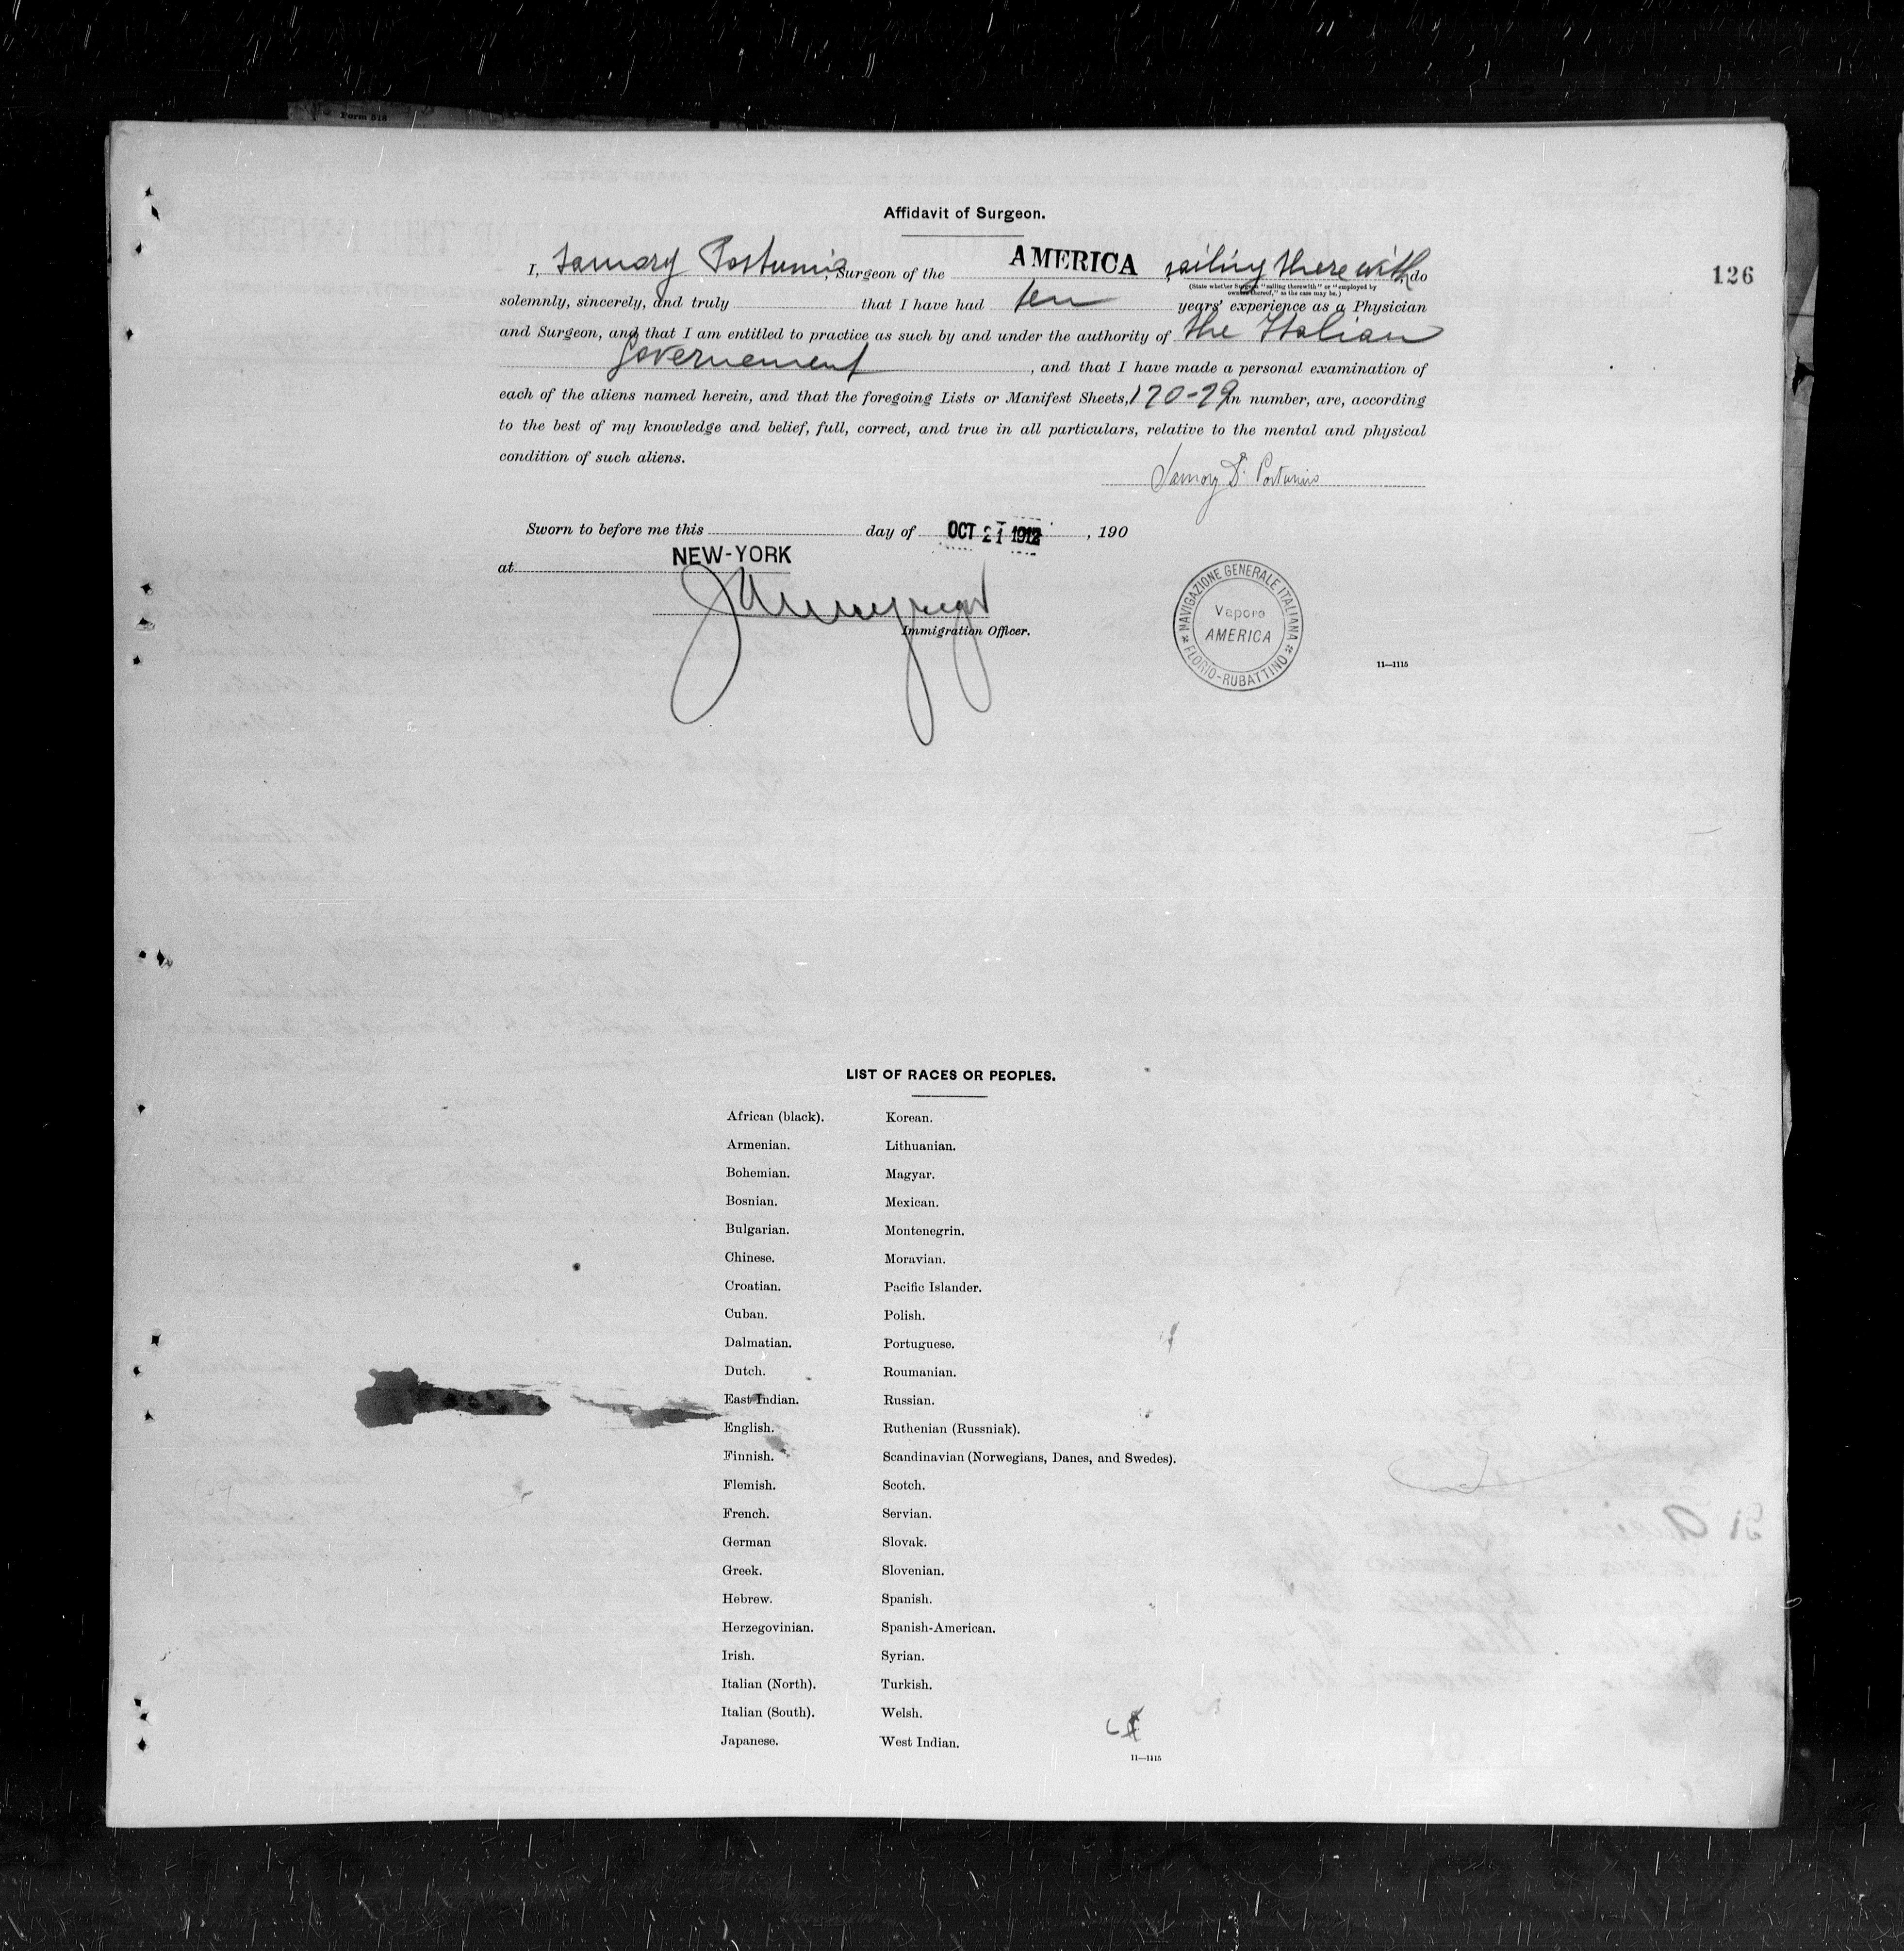 Form 518
Affidavit of Surgeon.
126
I, Samory Postumio, Surgeon of the AMERICA, sailing therewith, do
(State whether Surgeon "sailing therewith" or "employed by
owners thereof," as the case may be.)
solemnly, sincerely, and truly that I have had ten years' experience as a Physician
and Surgeon, and that I am entitled to practice as such by and under the authority of the Italian
Governement, and that I have made a personal examination of
each of the aliens named herein, and that the foregoing Lists or Manifest Sheets, in number, are, according
to the best of my knowledge and belief, full, correct, and true in all particulars, relative to the mental and physical
condition of such aliens.
Samory Dr. Postumio
Sworn to before me this day of OCT 21 1912, 190
at NEW-YORK
Immigration Officer.
NAVIGAZIONE GENERALE ITALIANA
Vapore
AMERICA
FLORIO-RUBATTINO
11—1115
LIST OF RACES OR PEOPLES.
African (black).
Armenian.
Bohemian.
Bosnian.
Bulgarian.
Chinese.
Croatian.
Cuban.
Dalmatian.
Dutch.
East Indian.
English.
Finnish.
Flemish.
French.
German
Greek.
Hebrew.
Herzegovinian.
Irish.
Italian (North).
Italian (South).
Japanese.
Korean.
Lithuanian.
Magyar.
Mexican.
Montenegrin.
Moravian.
Pacific Islander.
Polish.
Portuguese.
Roumanian.
Russian.
Ruthenian (Russniak).
Scandinavian (Norwegians, Danes, and Swedes).
Scotch.
Servian.
Slovak.
Slovenian.
Spanish.
Spanish-American.
Syrian.
Turkish.
Welsh.
West Indian.
11—1115